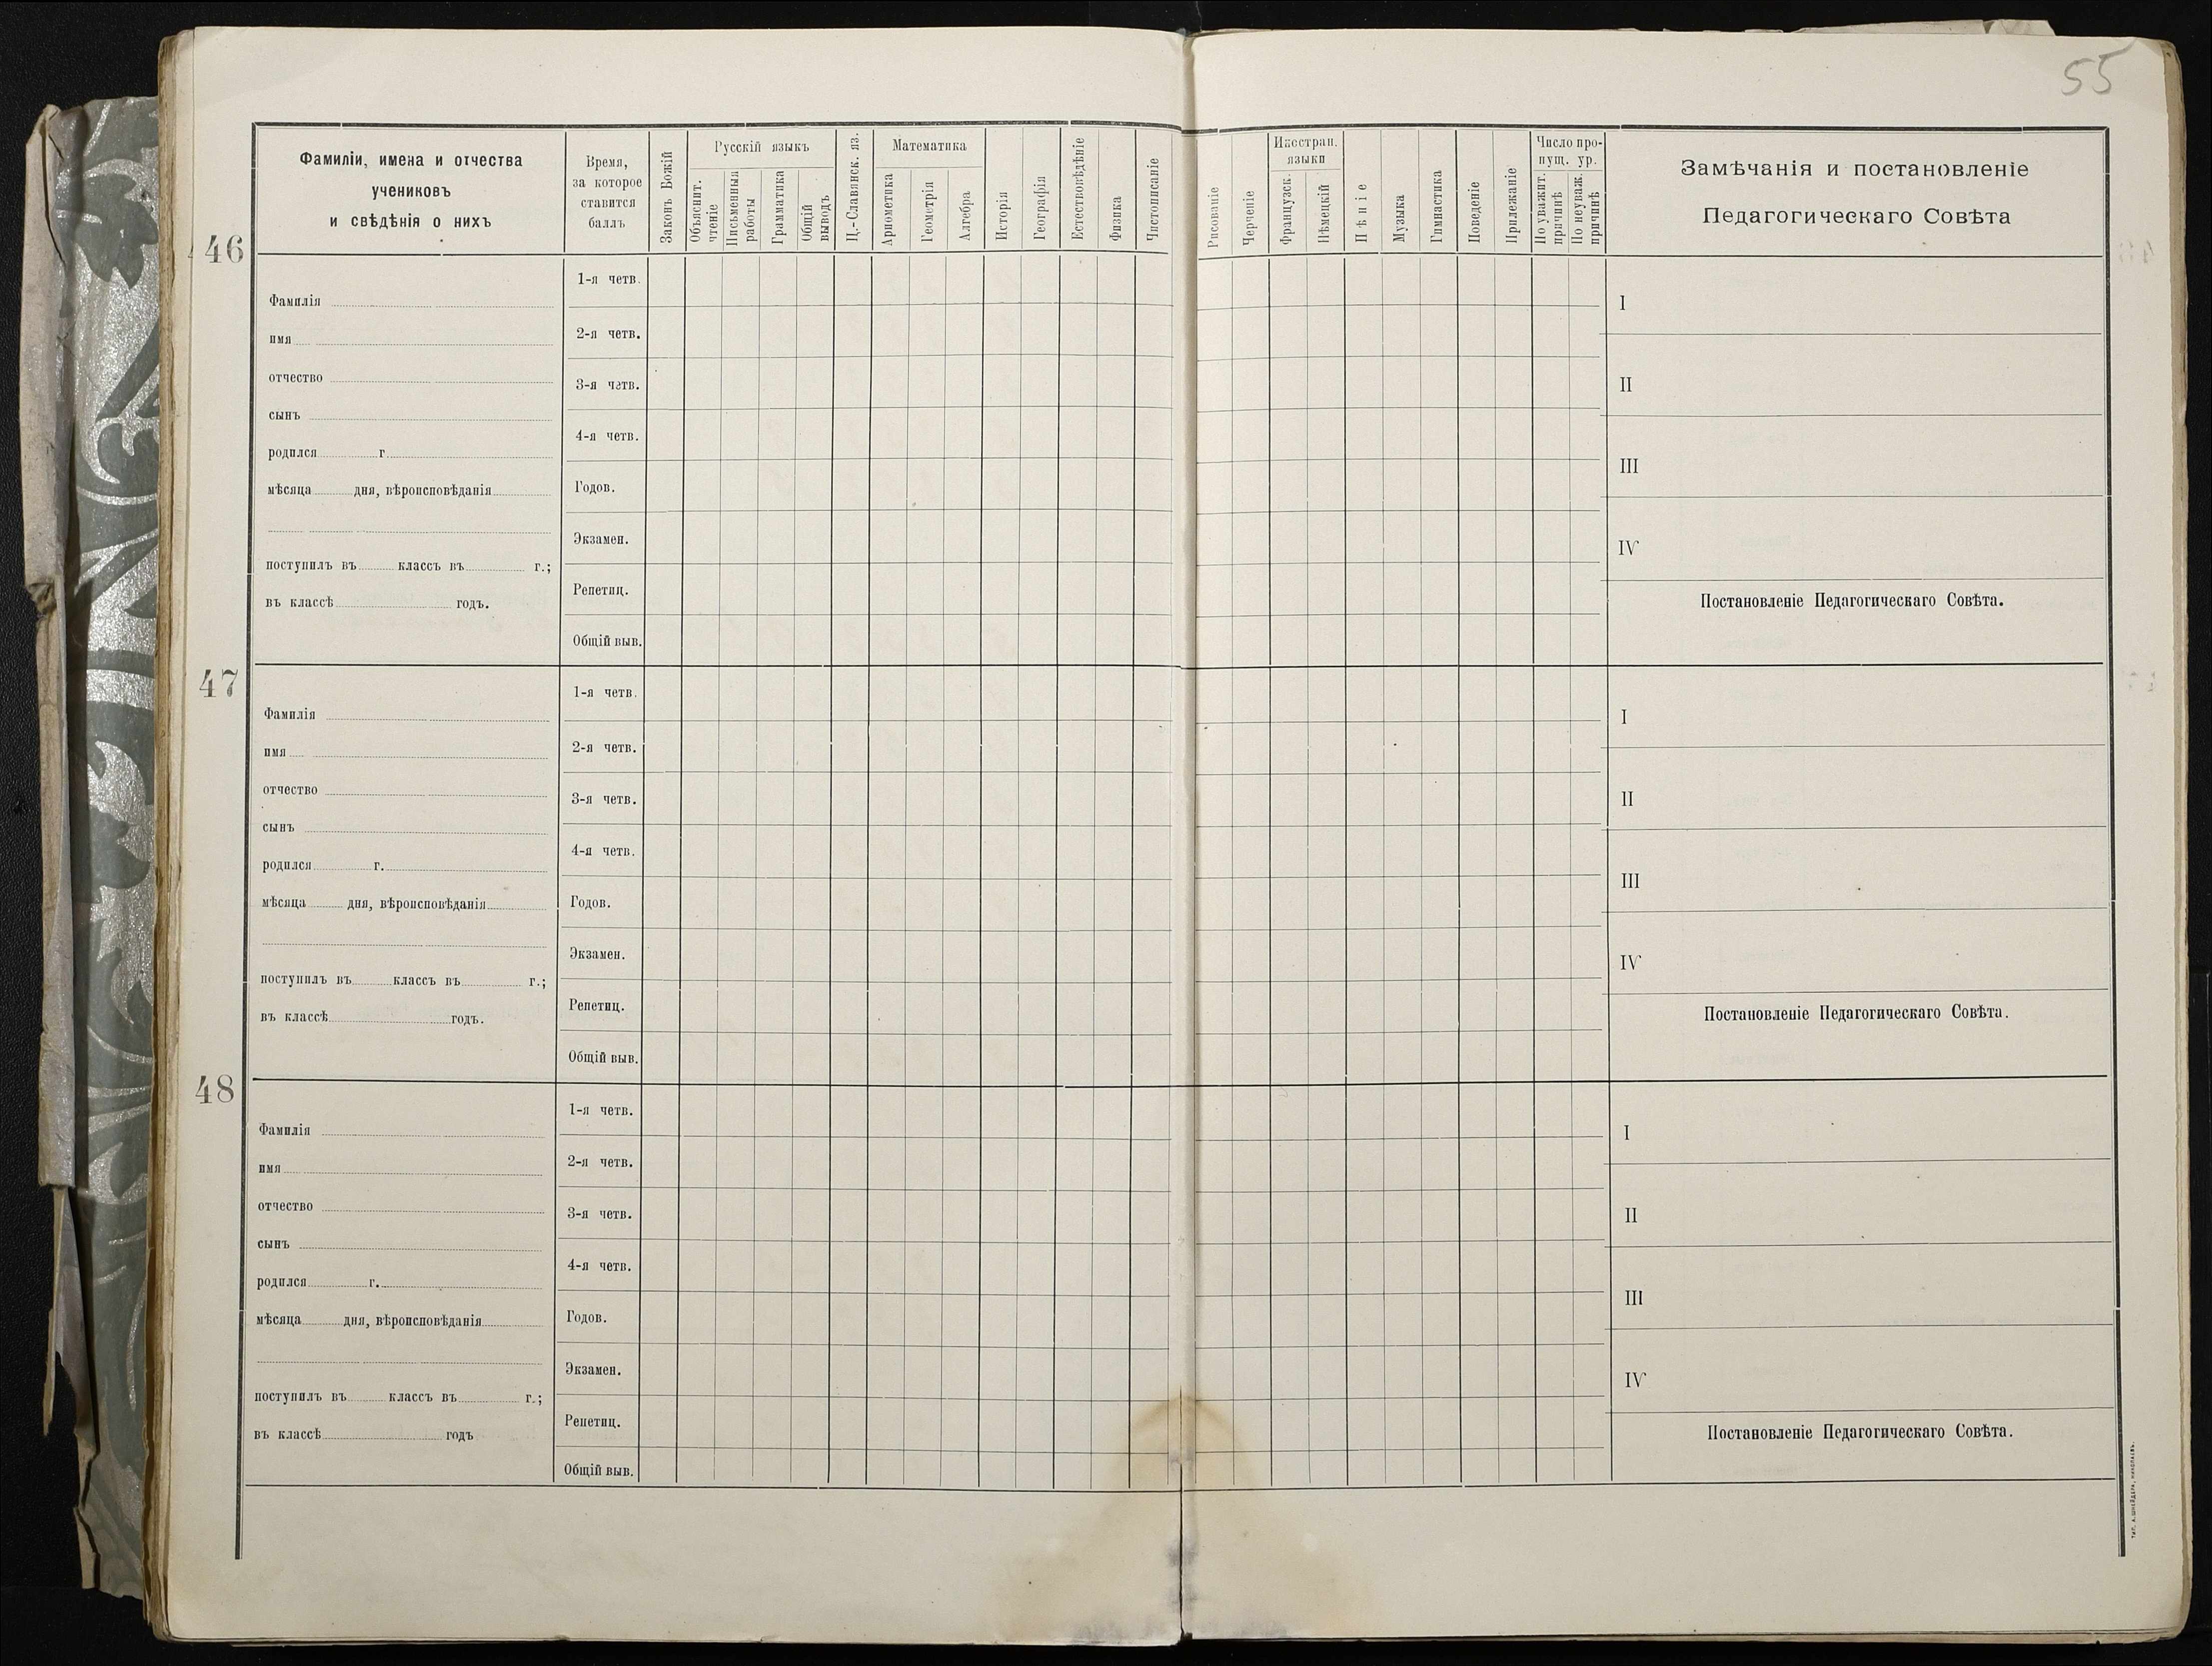 55
Фамиліи, имена и отчества
учениковъ
и свѣдѣнія о нихъ
Время,
за которое
ставится
баллъ
Законъ Божій
Русскій языкъ
Объяснит.
чтеніе
Письменныя
работы
Грамматика
Общій
выводъ
Ц.-Славянск. яз.
Математика
Ариѳметика
Геометрія
Алгебра
Исторія
Географія
Естествовѣдѣніе
Физика
Чистописаніе
Рисованіе
Черченіе
Иностран.
языки
Французск.
Нѣмецкій
Пѣніе
Музыка
Гимнастика
Поведеніе
Прилежаніе
Число про-
пущ. ур.
По уважит.
причинѣ
По неуваж.
причинѣ
Замѣчанія и постановленіе
Педагогическаго Совѣта
46
Фамилія
имя
отчество
сынъ
родился г
мѣсяца дня, вѣроисповѣданія
поступилъ въ классъ въ г.;
въ классѣ годъ.
1-я четв.
2-я четв.
3-я четв.
4-я четв.
Годов.
Экзамен.
Репетиц.
Общій выв.
I
II
III
IV
Постановленіе Педагогическаго Совѣта.
47
Фамилія
имя
отчество
сынъ
родился г.
мѣсяца дня, вѣроисповѣданія
поступилъ въ классъ въ г.;
въ классѣ годъ.
1-я четв.
2-я четв.
3-я четв.
4-я четв.
Годов.
Экзамен.
Репетиц.
Общій выв.
I
II
III
IV
Постановленіе Педагогическаго Совѣта.
48
Фамилія
имя
отчество
сынъ
родился г.
мѣсяца дня, вѣроисповѣданія
поступилъ въ классъ въ г.;
въ классѣ годъ
1-я четв.
2-я четв.
3-я четв.
4-я четв.
Годов.
Экзамен.
Репетиц.
Общій выв.
I
II
III
IV
Постановленіе Педагогическаго Совѣта.
ТИП. А. ШНЕЙДЕРА, НИКОЛАЕВЪ.